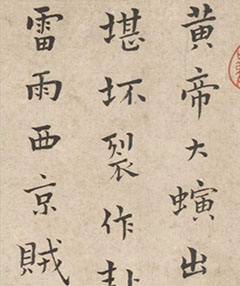 黄帝大螾出
堪坏裂作
雷雨西京賊